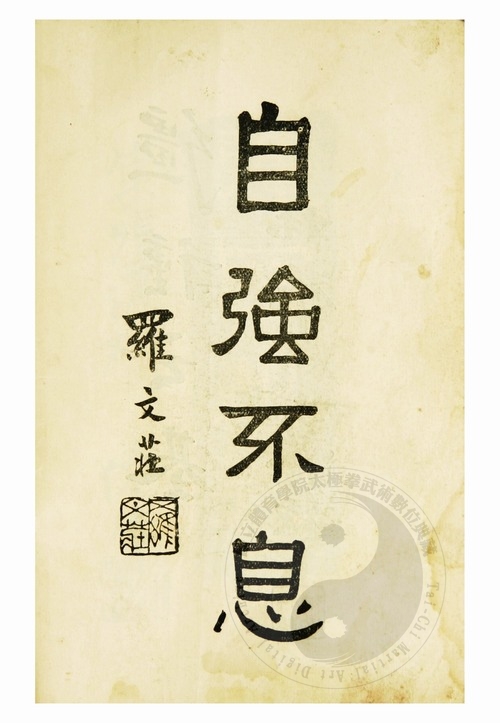 自強不息
羅文莊
立體育學院太極拳武術數位
Tai-Chi Martial Art Digital